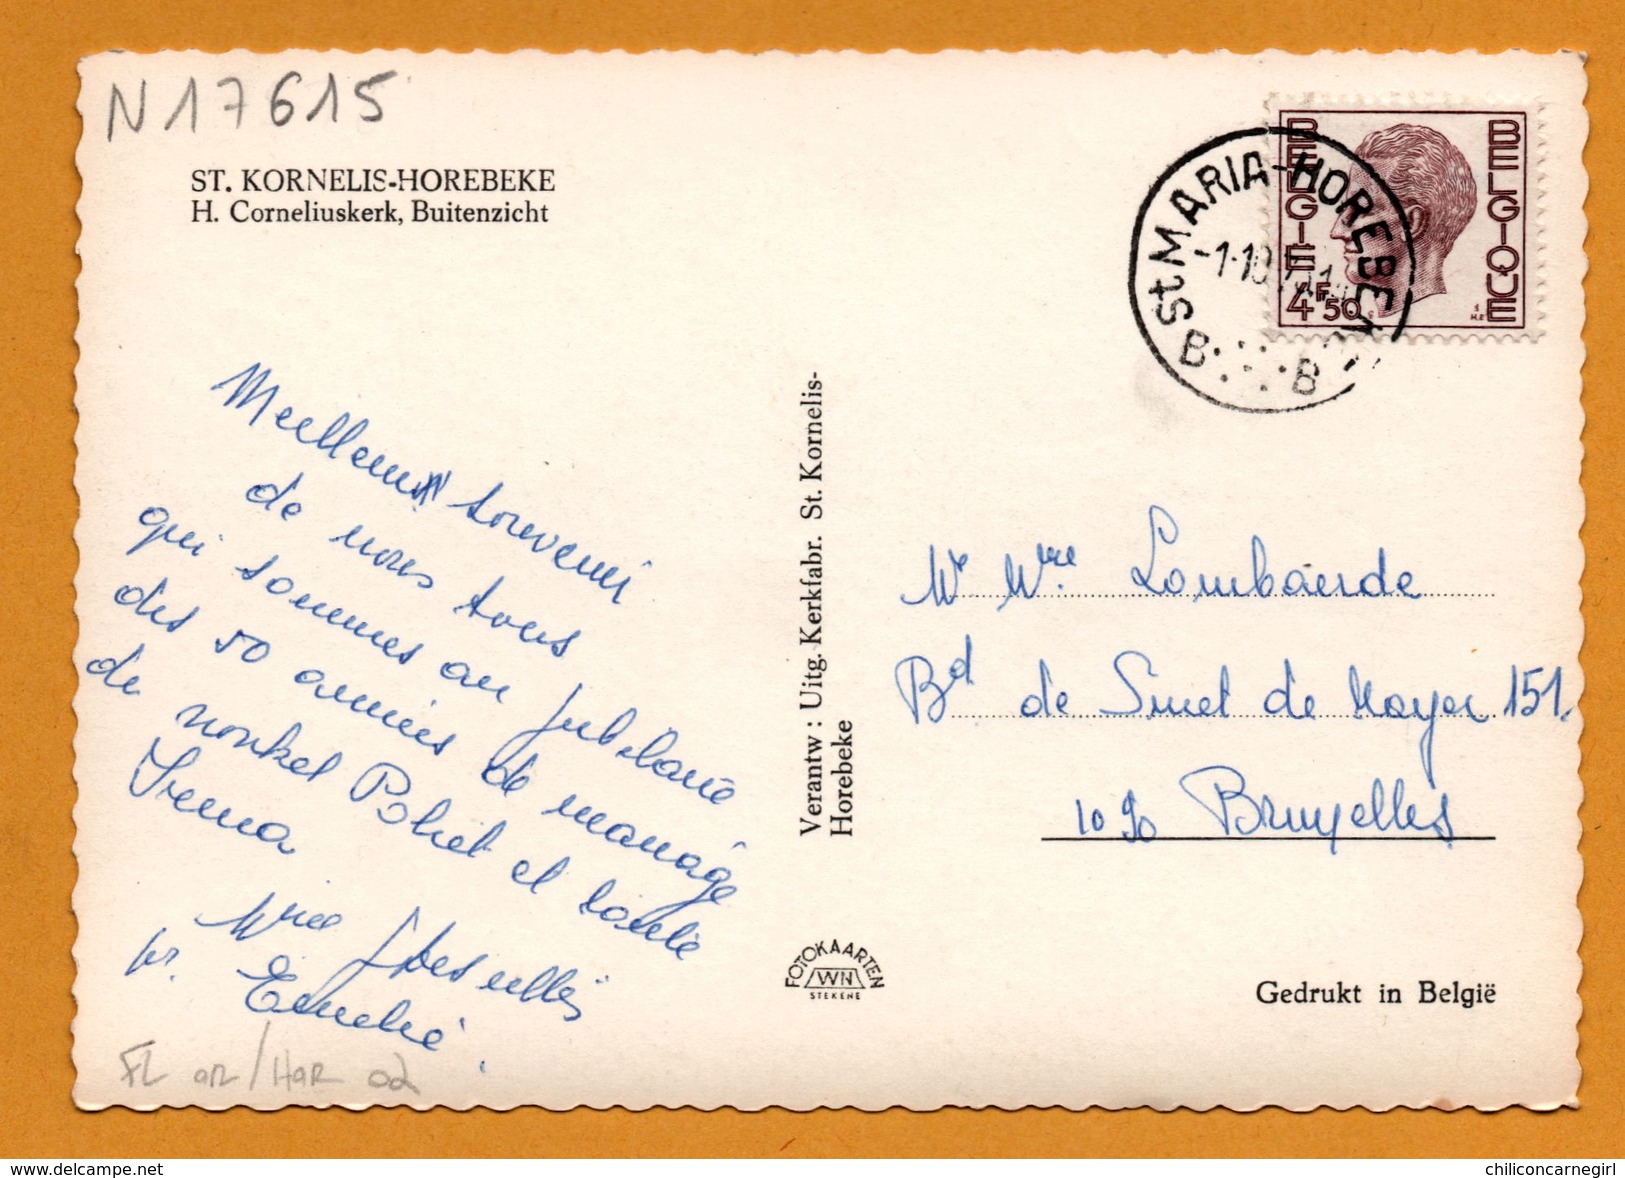 N17615
ST. KORNELIS-HOREBEKE
H. Corneliuskerk, Buitenzicht
Meilleur souvenir
de nous tous
qui sommes au jubilaire
des 50 années de mariage
de nonkel Poliet et tante
Irma
Emelie.
FL on / HOR 02
Verantw : Uitg. Kerkfabr. St. Kornelis-
Horebeke
FOTOKAARTEN
WN
STEKENE
BELGIE
BELGIQUE
4F50
St MARIA-HOREBEKE
-1-10
B B
Mr Mvre Lombaerde
Bd de Smet de Nayer 151.
1090 Bruxelles
Gedrukt in België
www.delcampe.net
chiliconcarnegirl